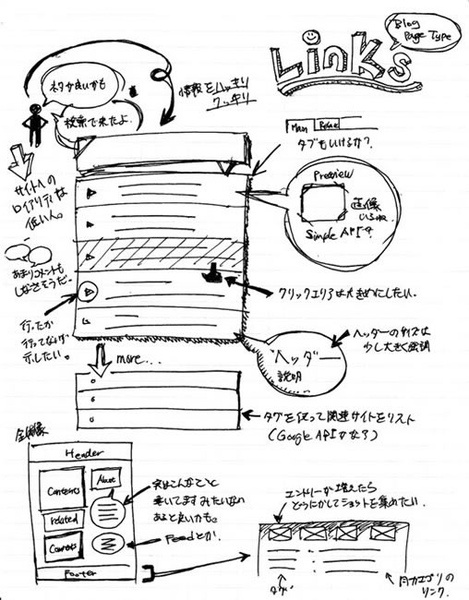 Links
Blog
Page Type
ネタが良いかも
検索で来たよ.
情報をハッキリ
クッキリ
Main
タブもいけるか?
サイトへの
ロイアリティは
低い人。
Preview
画像
Simple API?
あまりコメントも
しなさそうだ.
クリックエリアは大きめにしたい.
行ったか
行ってないか
示したい.
ヘッダー
説明
ヘッダーのサイズは
少し大きく強調
more...
タグを使って関連サイトをリスト
(Google APIかな?)
全体像
Header
Contents
About
related
Contents
Footer
実はこんなこと
書いてますみたいなの
あると良いかも.
Feedとか.
エントリーが増えたら
どうにかしてショットを集めたい.
タグ
同カテゴリの
リンク.